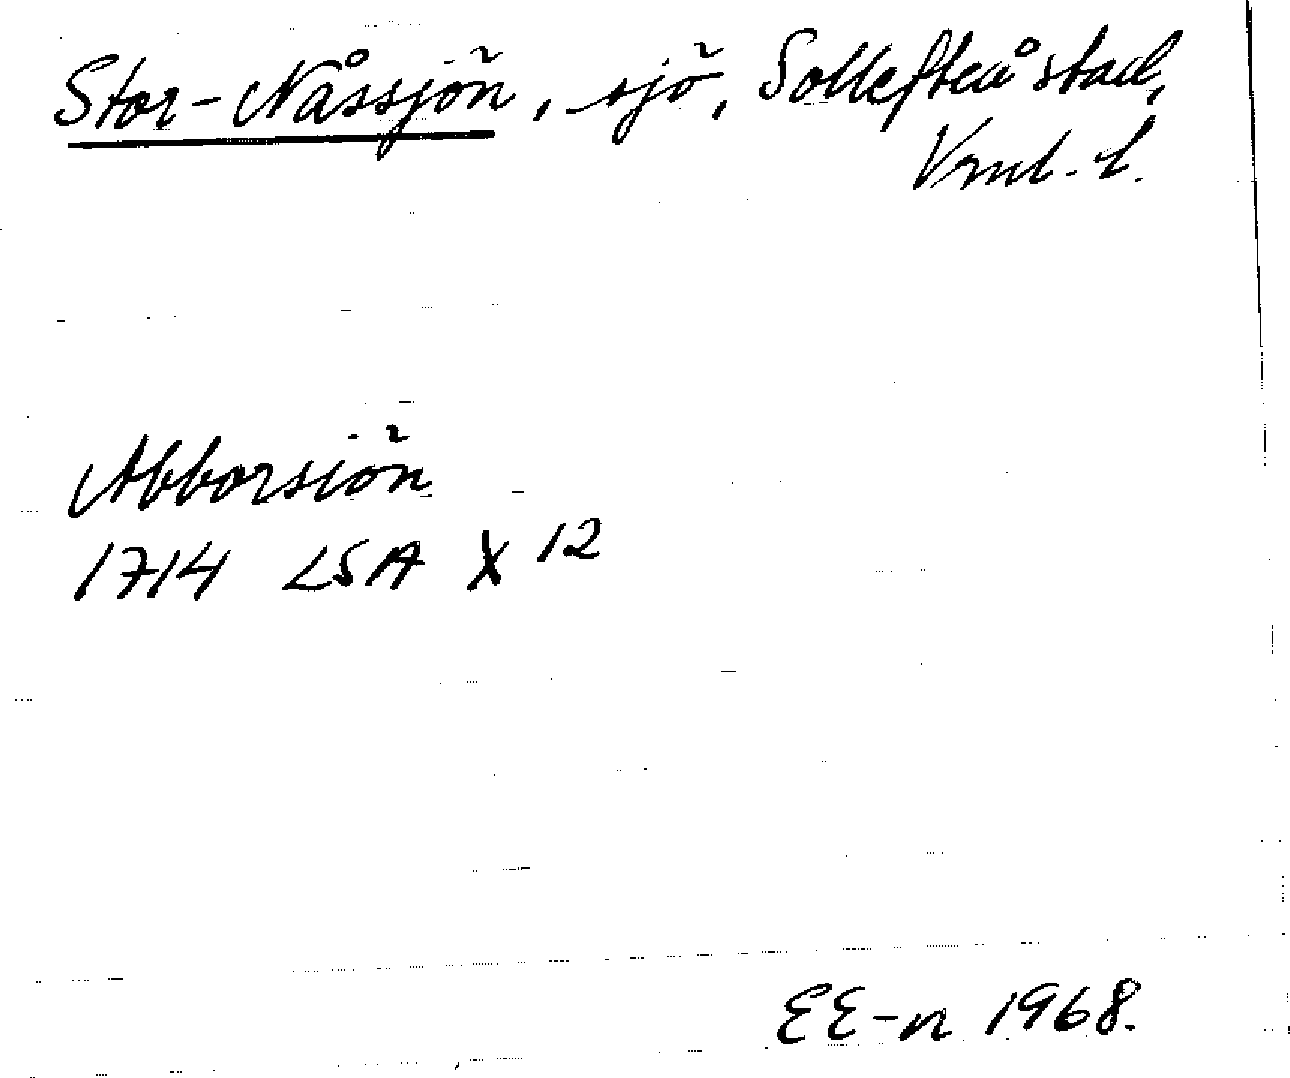 Stor-Nåssjön, sjö, Sollefteå stad,
Vrnl. l.
Abborsiön
1714 LSA X 12
EE-n 1968.